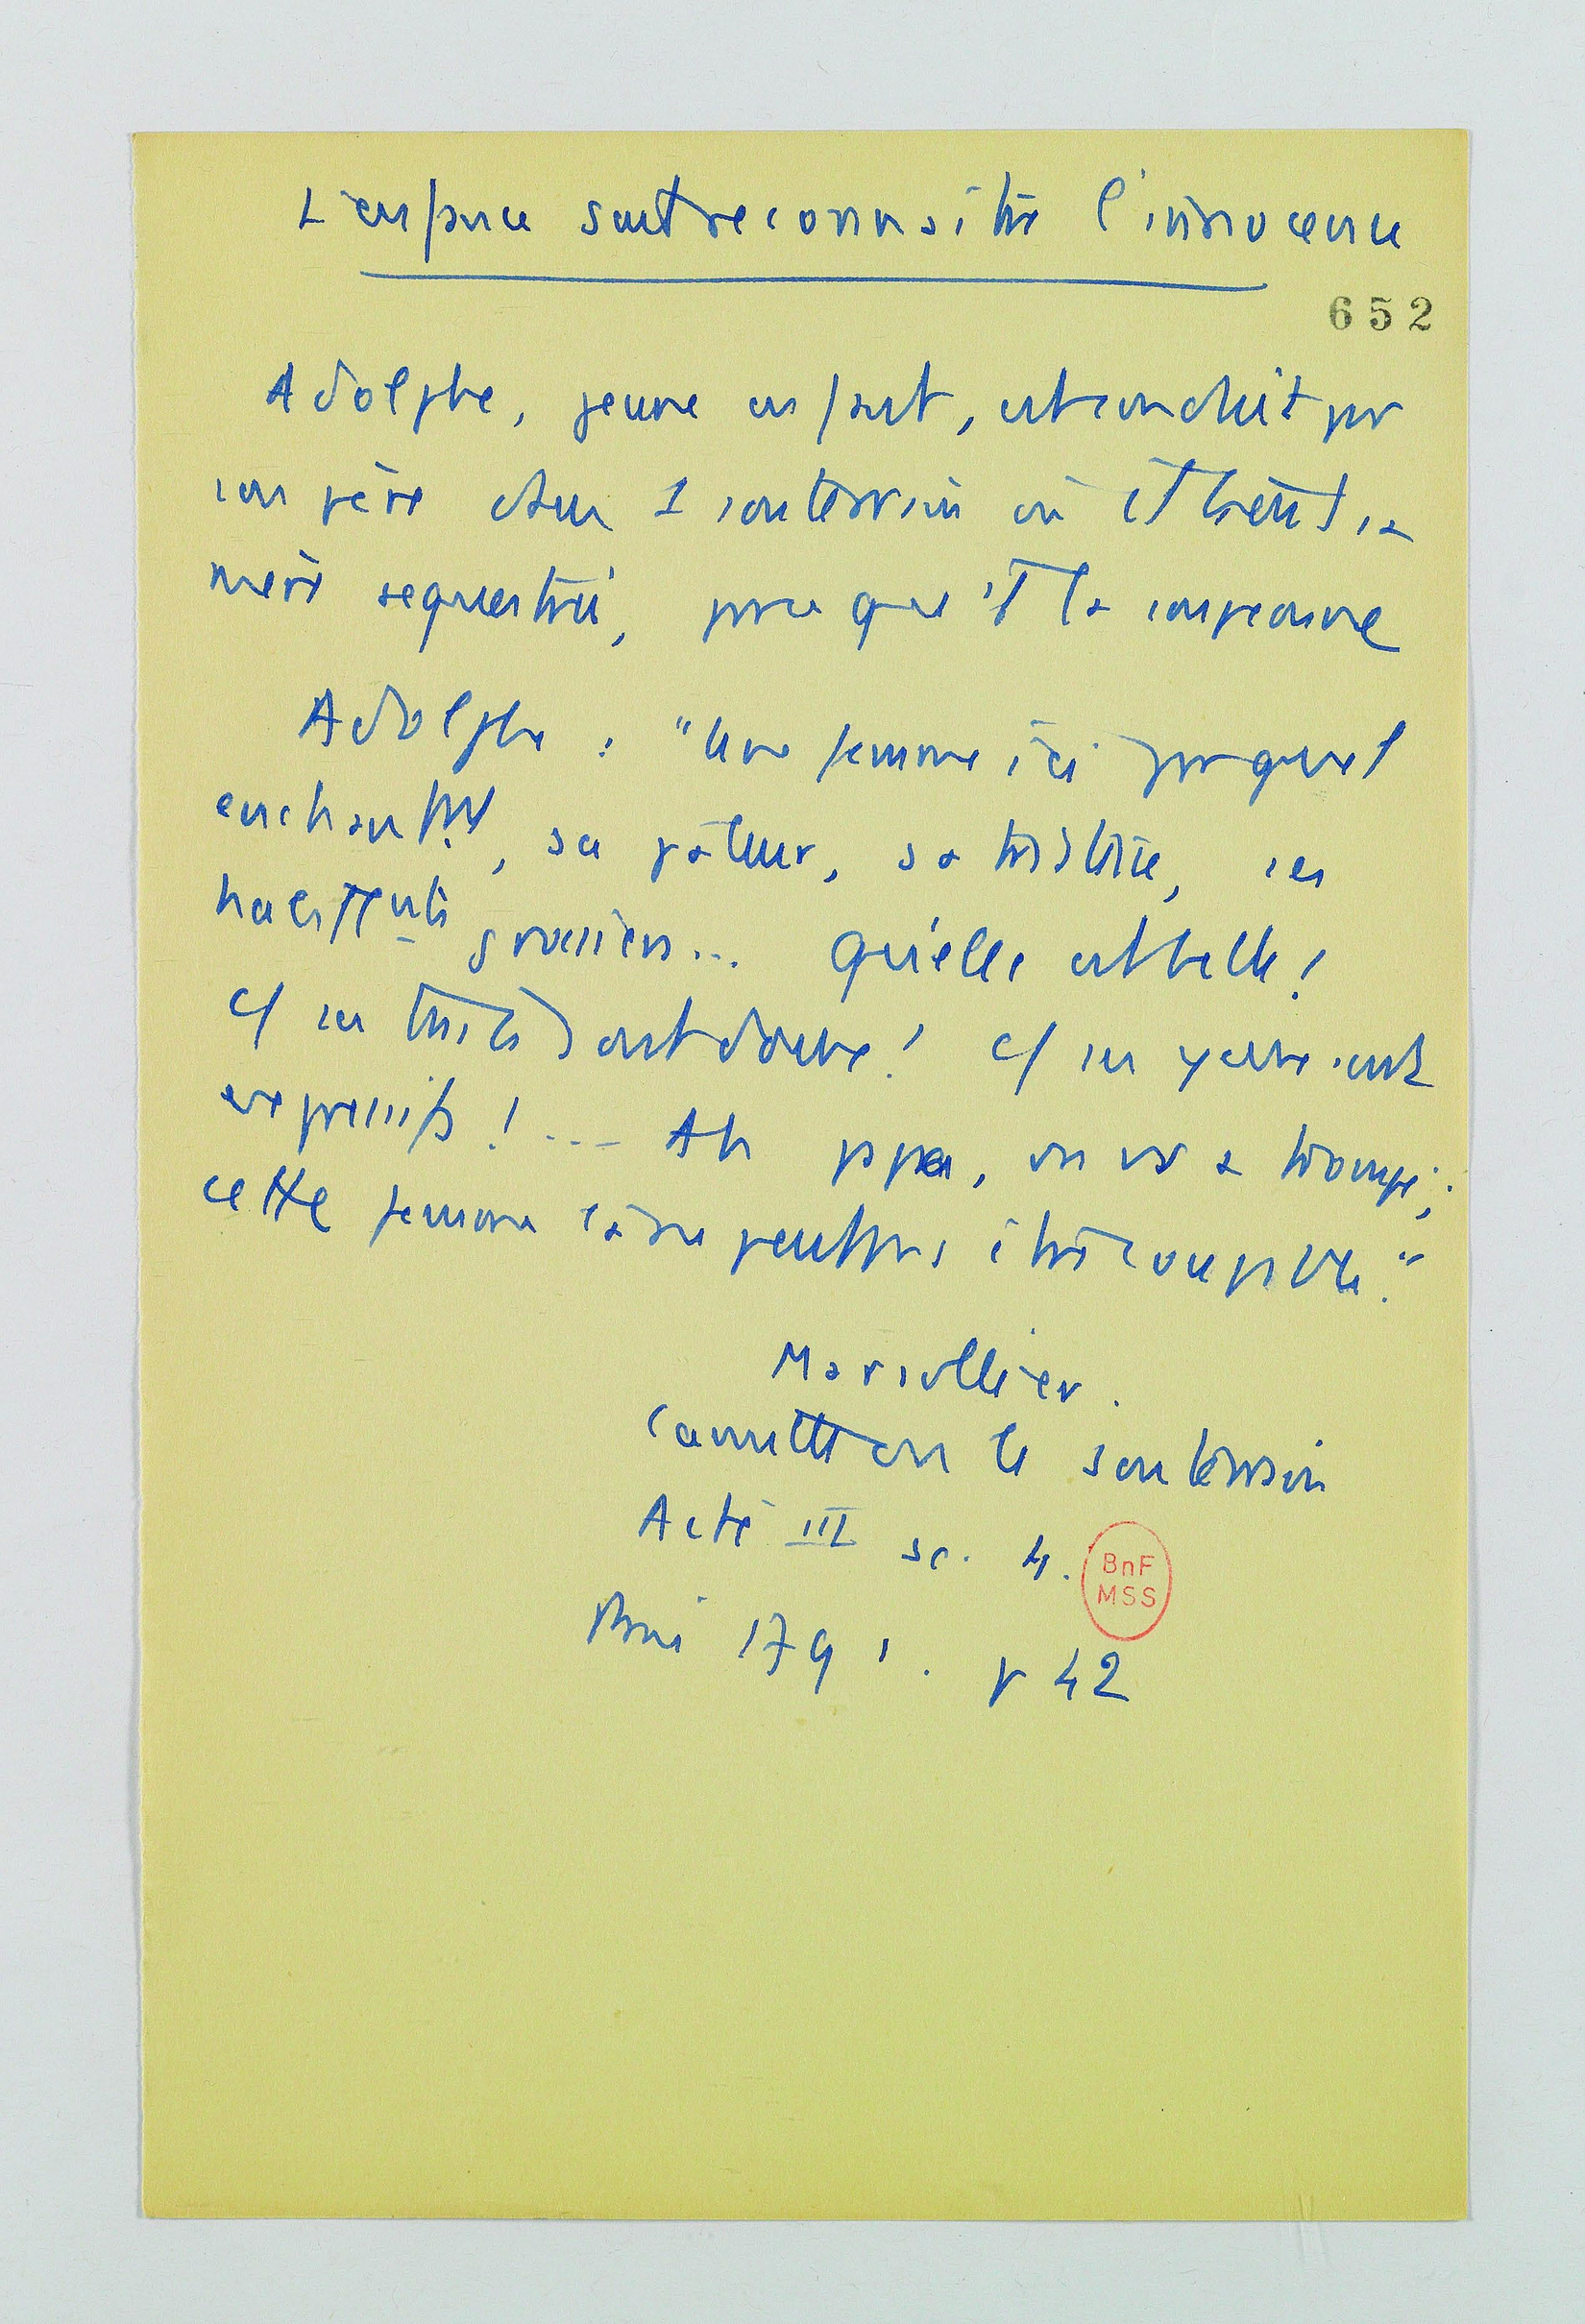 L'enfance sait reconnaitre l'innocence
652
Adolphe, jeune enfant, est conduit par
son père dans 1 souterrain où il tient sa
mère sequestrée, parce que il la soupçonne
Adolphe : "Une femme ici par quel
enchant^nt, sa pâleur, sa tristesse, ses
vêt^nts grossiers... Qu'elle est belle !
c/ ses traits sont doux ! c/ ses yeux sont
expressifs ! ... Ah papa, on vs a trompé ;
cette femme là ne peut pas être coupable."
Marsollier.
Camille ou le souterrain
Acte III sc. 4.
BnF
MSS
Paris 1791. p 42